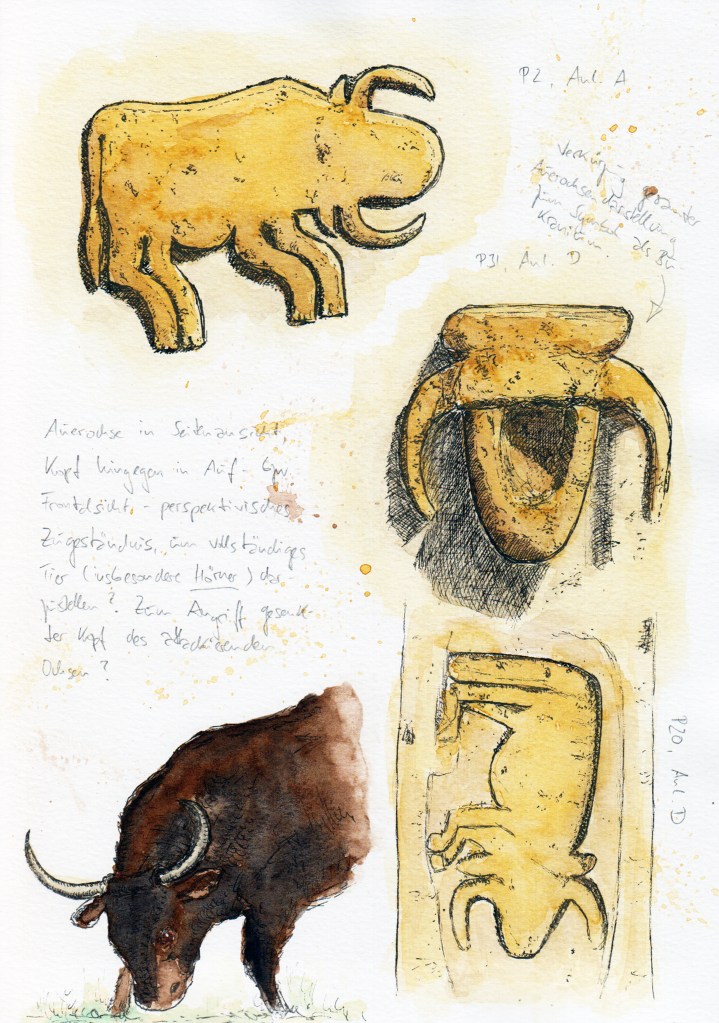 P2, Anl. A
Verkürzung gesamter
Auerochsendarstellung
zum Symbol als Bu-
kranium.
P31, Anl. D
Auerochse in Seitenansicht,
Kopf hingegen in Auf- bzw.
Frontalsicht - perspektivisches
Zugeständnis, um vollständiges
Tier (insbesondere Hörner) dar
zustellen? Zum Angriff gesenk-
ter Kopf des attackierenden
Ochsen?
P20, Anl. D